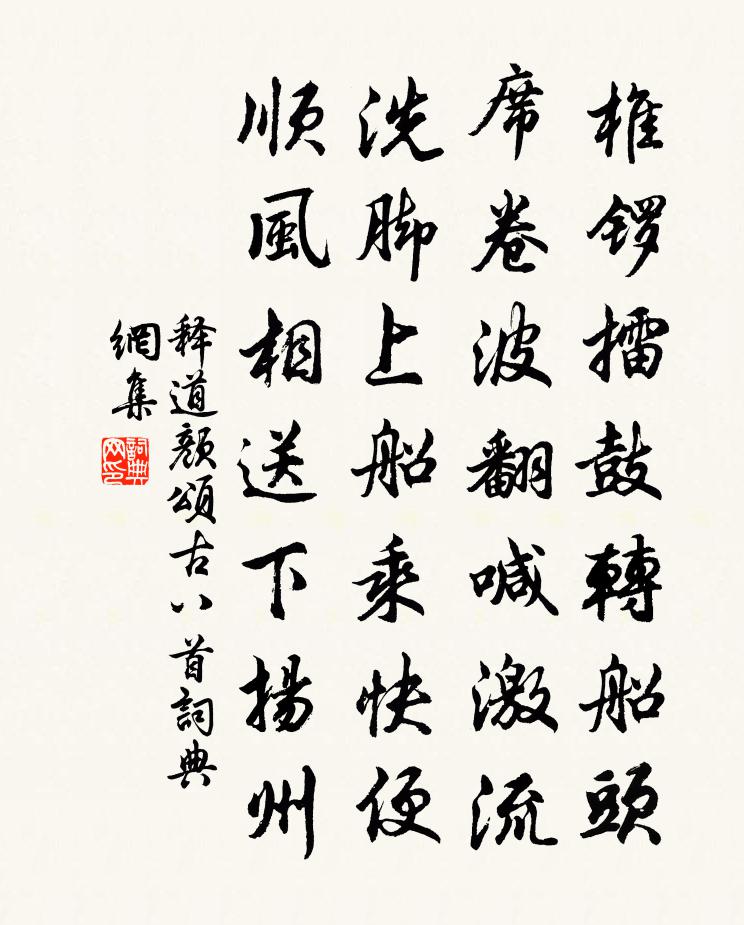 椎锣擂鼓轉船頭
席卷波翻喊激流
洗脚上船乘快便
順風相送下揚州
释道颜頌古八首詞典
網集
詞典
网印